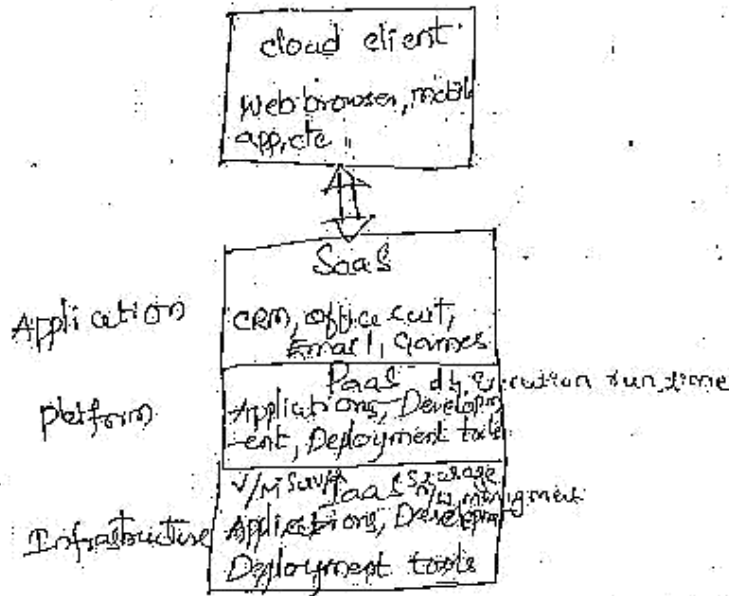 cloud client
Web browser, mobile
app, etc
SaaS
Application
CRM, office suit,
Email, Games
PaaS db, Execution runtime
platform
Applications, Developm
-ent, Deployment tools
V/M Server IaaS Storage
n/w management
Infrastructure
Applications, Developm
Deployment tools